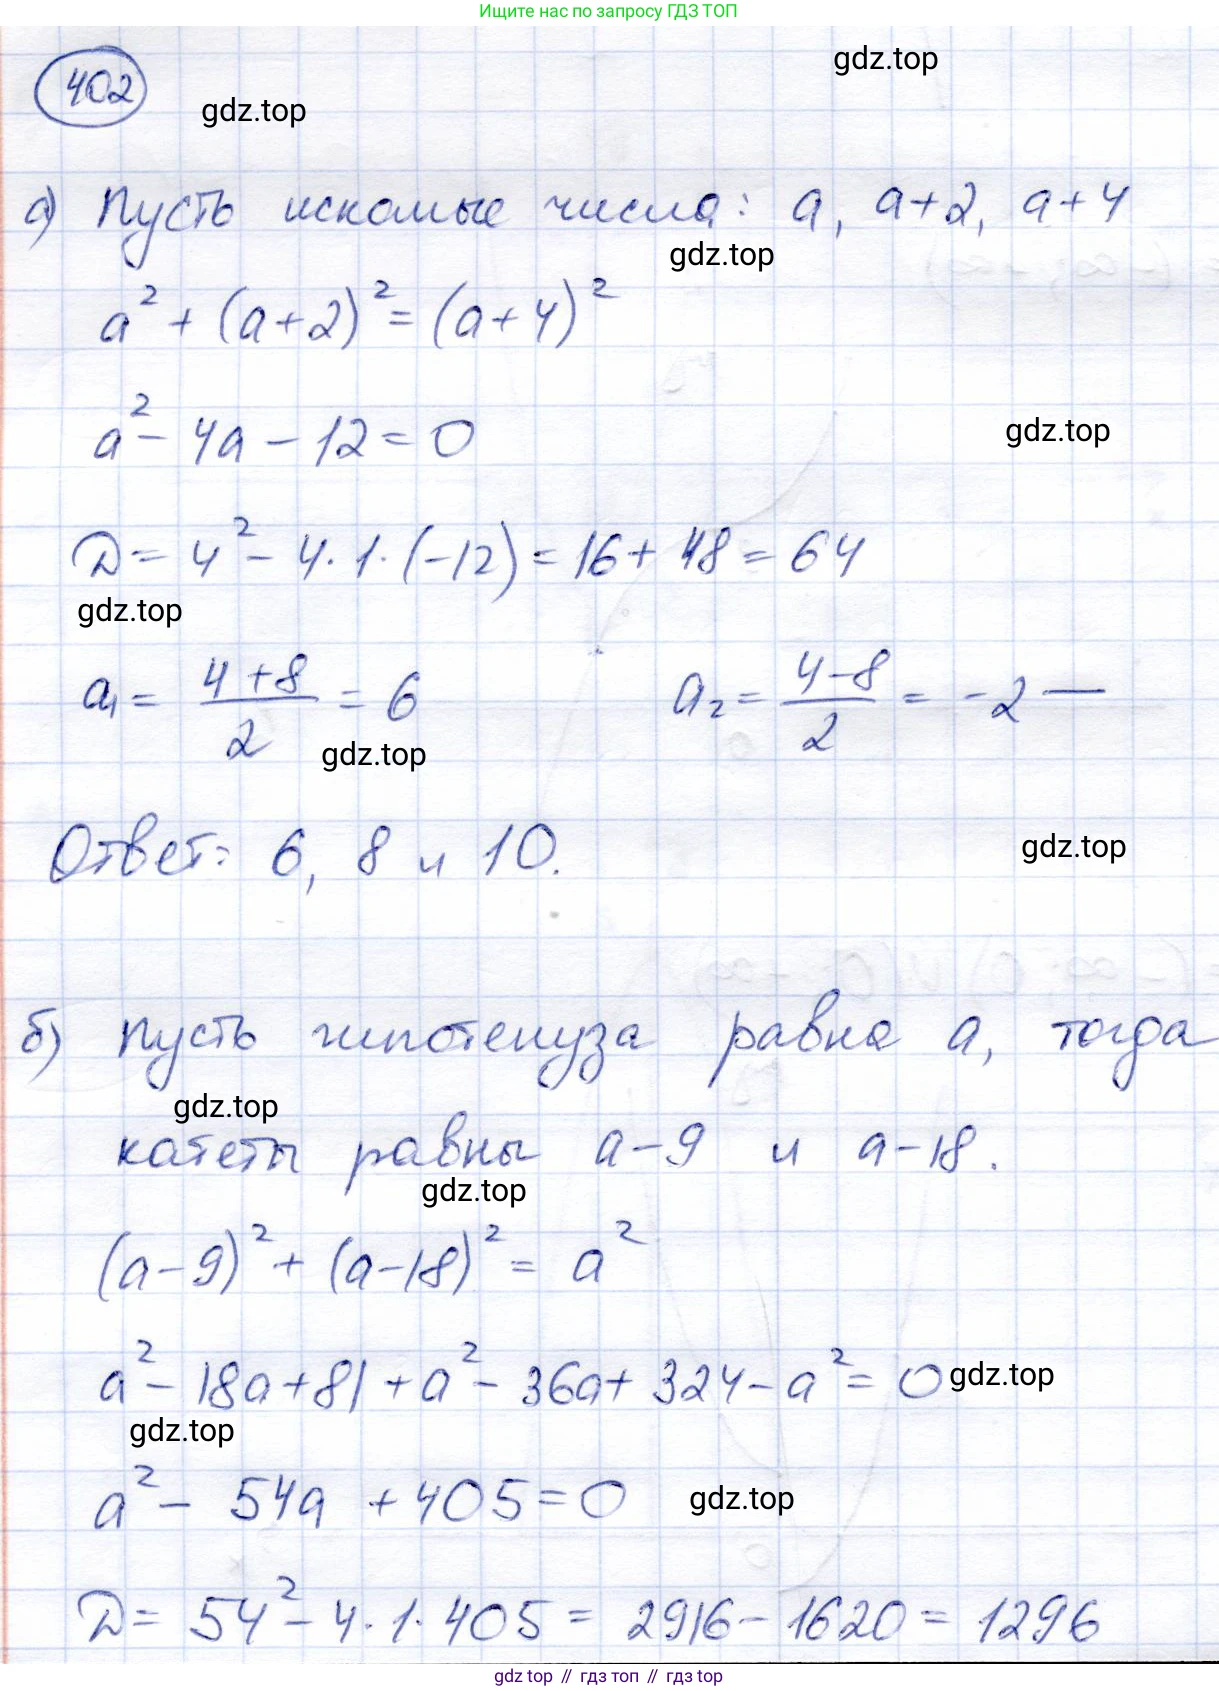 Ищите нас по запросу ГДЗ ТОП
402
gdz.top
gdz.top
а) Пусть искомые числа: a, a+2, a+4
gdz.top
a² + (a+2)² = (a+4)²
a² - 4a - 12 = 0
gdz.top
D = 4² - 4·1·(-12) = 16 + 48 = 64
gdz.top
a₁ = (4+8)/2 = 6 a₂ = (4-8)/2 = -2 —
gdz.top
Ответ: 6, 8 и 10.
gdz.top
б) Пусть гипотенуза равна a, тогда
gdz.top
катеты равны a-9 и a-18.
gdz.top
(a-9)² + (a-18)² = a²
a² - 18a + 81 + a² - 36a + 324 - a² = 0
gdz.top
gdz.top
a² - 54a + 405 = 0
gdz.top
D = 54² - 4·1·405 = 2916 - 1620 = 1296
gdz top // гдз топ // гдз top